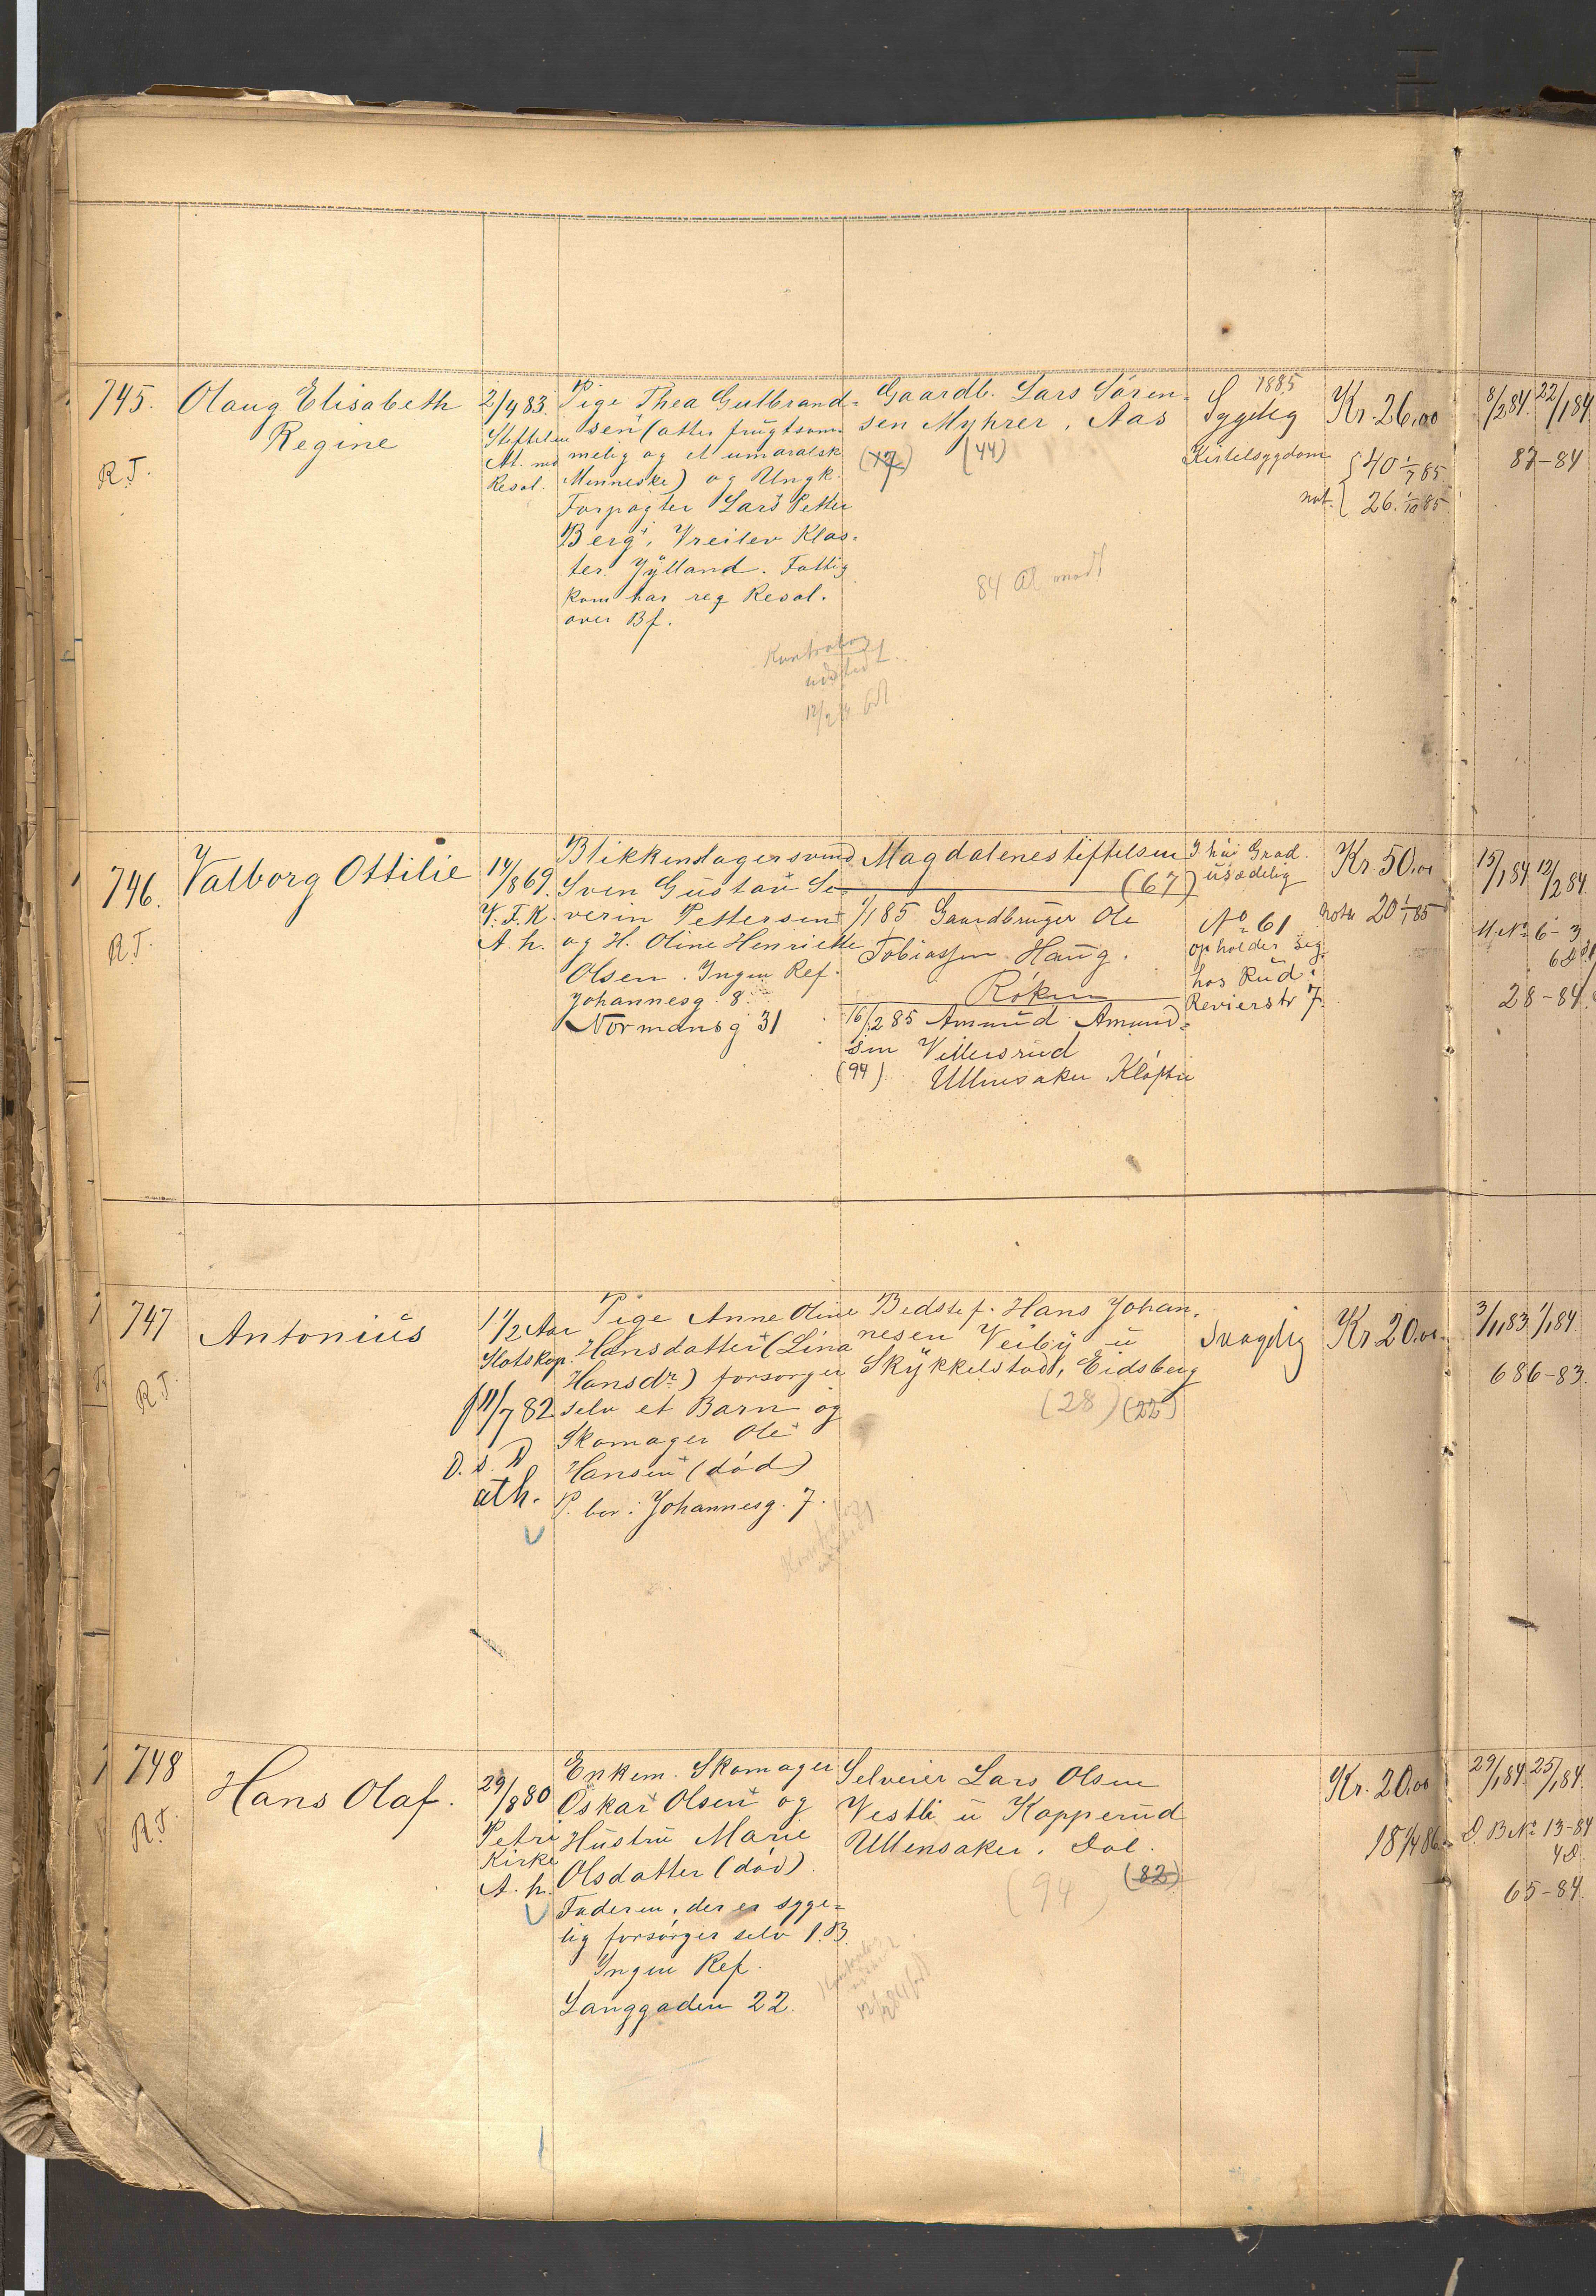 745.
R.T.
Olaug Elisabeth
Regine
2/4 83.
Stiftelsen
At. md
Resol.
Pige Thea Gulbrand=
sen (atter frugtsom=
melig og et umoralsk
Menneske) og Ungk.
Forpagter Lars Petter
Berg, Vreilev Klos=
ter. Jylland. Fattig
kom har reg Resol.
over Bf.
Gaardb. Lars Sören=
sen Myhrer, Aas
(17) (44)
84
Kontrabog
udsted
1885
Sygelig
Kirtelsygdom
Kr. 26.00
{ 40 1/7 85
not. { 26. 1/10 85
8/2 84. 22/1 84
87-84
746.
R.T.
Valborg Ottilie
14/8 69.
V. F. K.
A. h.
Blikkenslagersvend
Sven Gustav Se=
verin Pettersen
og H. Oline Henriette
Olsen. Ingen Ref.
Johannesg. 8.
Normansg 31
Magdalenestiftelsen
(67)
1/1 85 Gaardbruger Ole
Tobiassen Haug.
Röken
16/2 85 Amund Amund=
sen Villersrud
(94) Ullensaker Klöften
I høi Grad.
usædelig
No 61
opholder seg
hos Rud
Revierstr 7.
Kr. 50.00
Nota 20 1/1 85
15/1 84 12/2 84.
M. No 6-3
28-84
747
R.T.
Antonius
1 1/2 Aar
Slotskap.
f 11/7 82
D. s. D
ath.
Pige Anne Oline
Hansdatter (Lina
Hansdr) forsørger
selv et Barn og
Skomager Ole
Hansen (död)
P. bor: Johannesg. 7.
Bedstef. Hans Johan=
nesen Veiby u
Skykkelstad, Eidsberg
(28) (22)
Svagelig
Kr 20.00
3/11 83. 1/1 84.
686-83.
748
R.T.
Hans Olaf.
29/8 80
Petri
Kirke
A. h.
Enkem. Skomager
Oskar Olsen og
Hustru Marie
Olsdatter (död).
Faderen, der er syge=
lig forsörger selv 1.B.
Ingen Ref.
Langgaden 22.
Selveier Lars Olsen
Vestli u Kopperud
Ullensaker, Dal.
(94) (82)
Kr. 20.00
18 1/4 86
29/1 84. 25/1 84.
D. B No 13-84
65-84